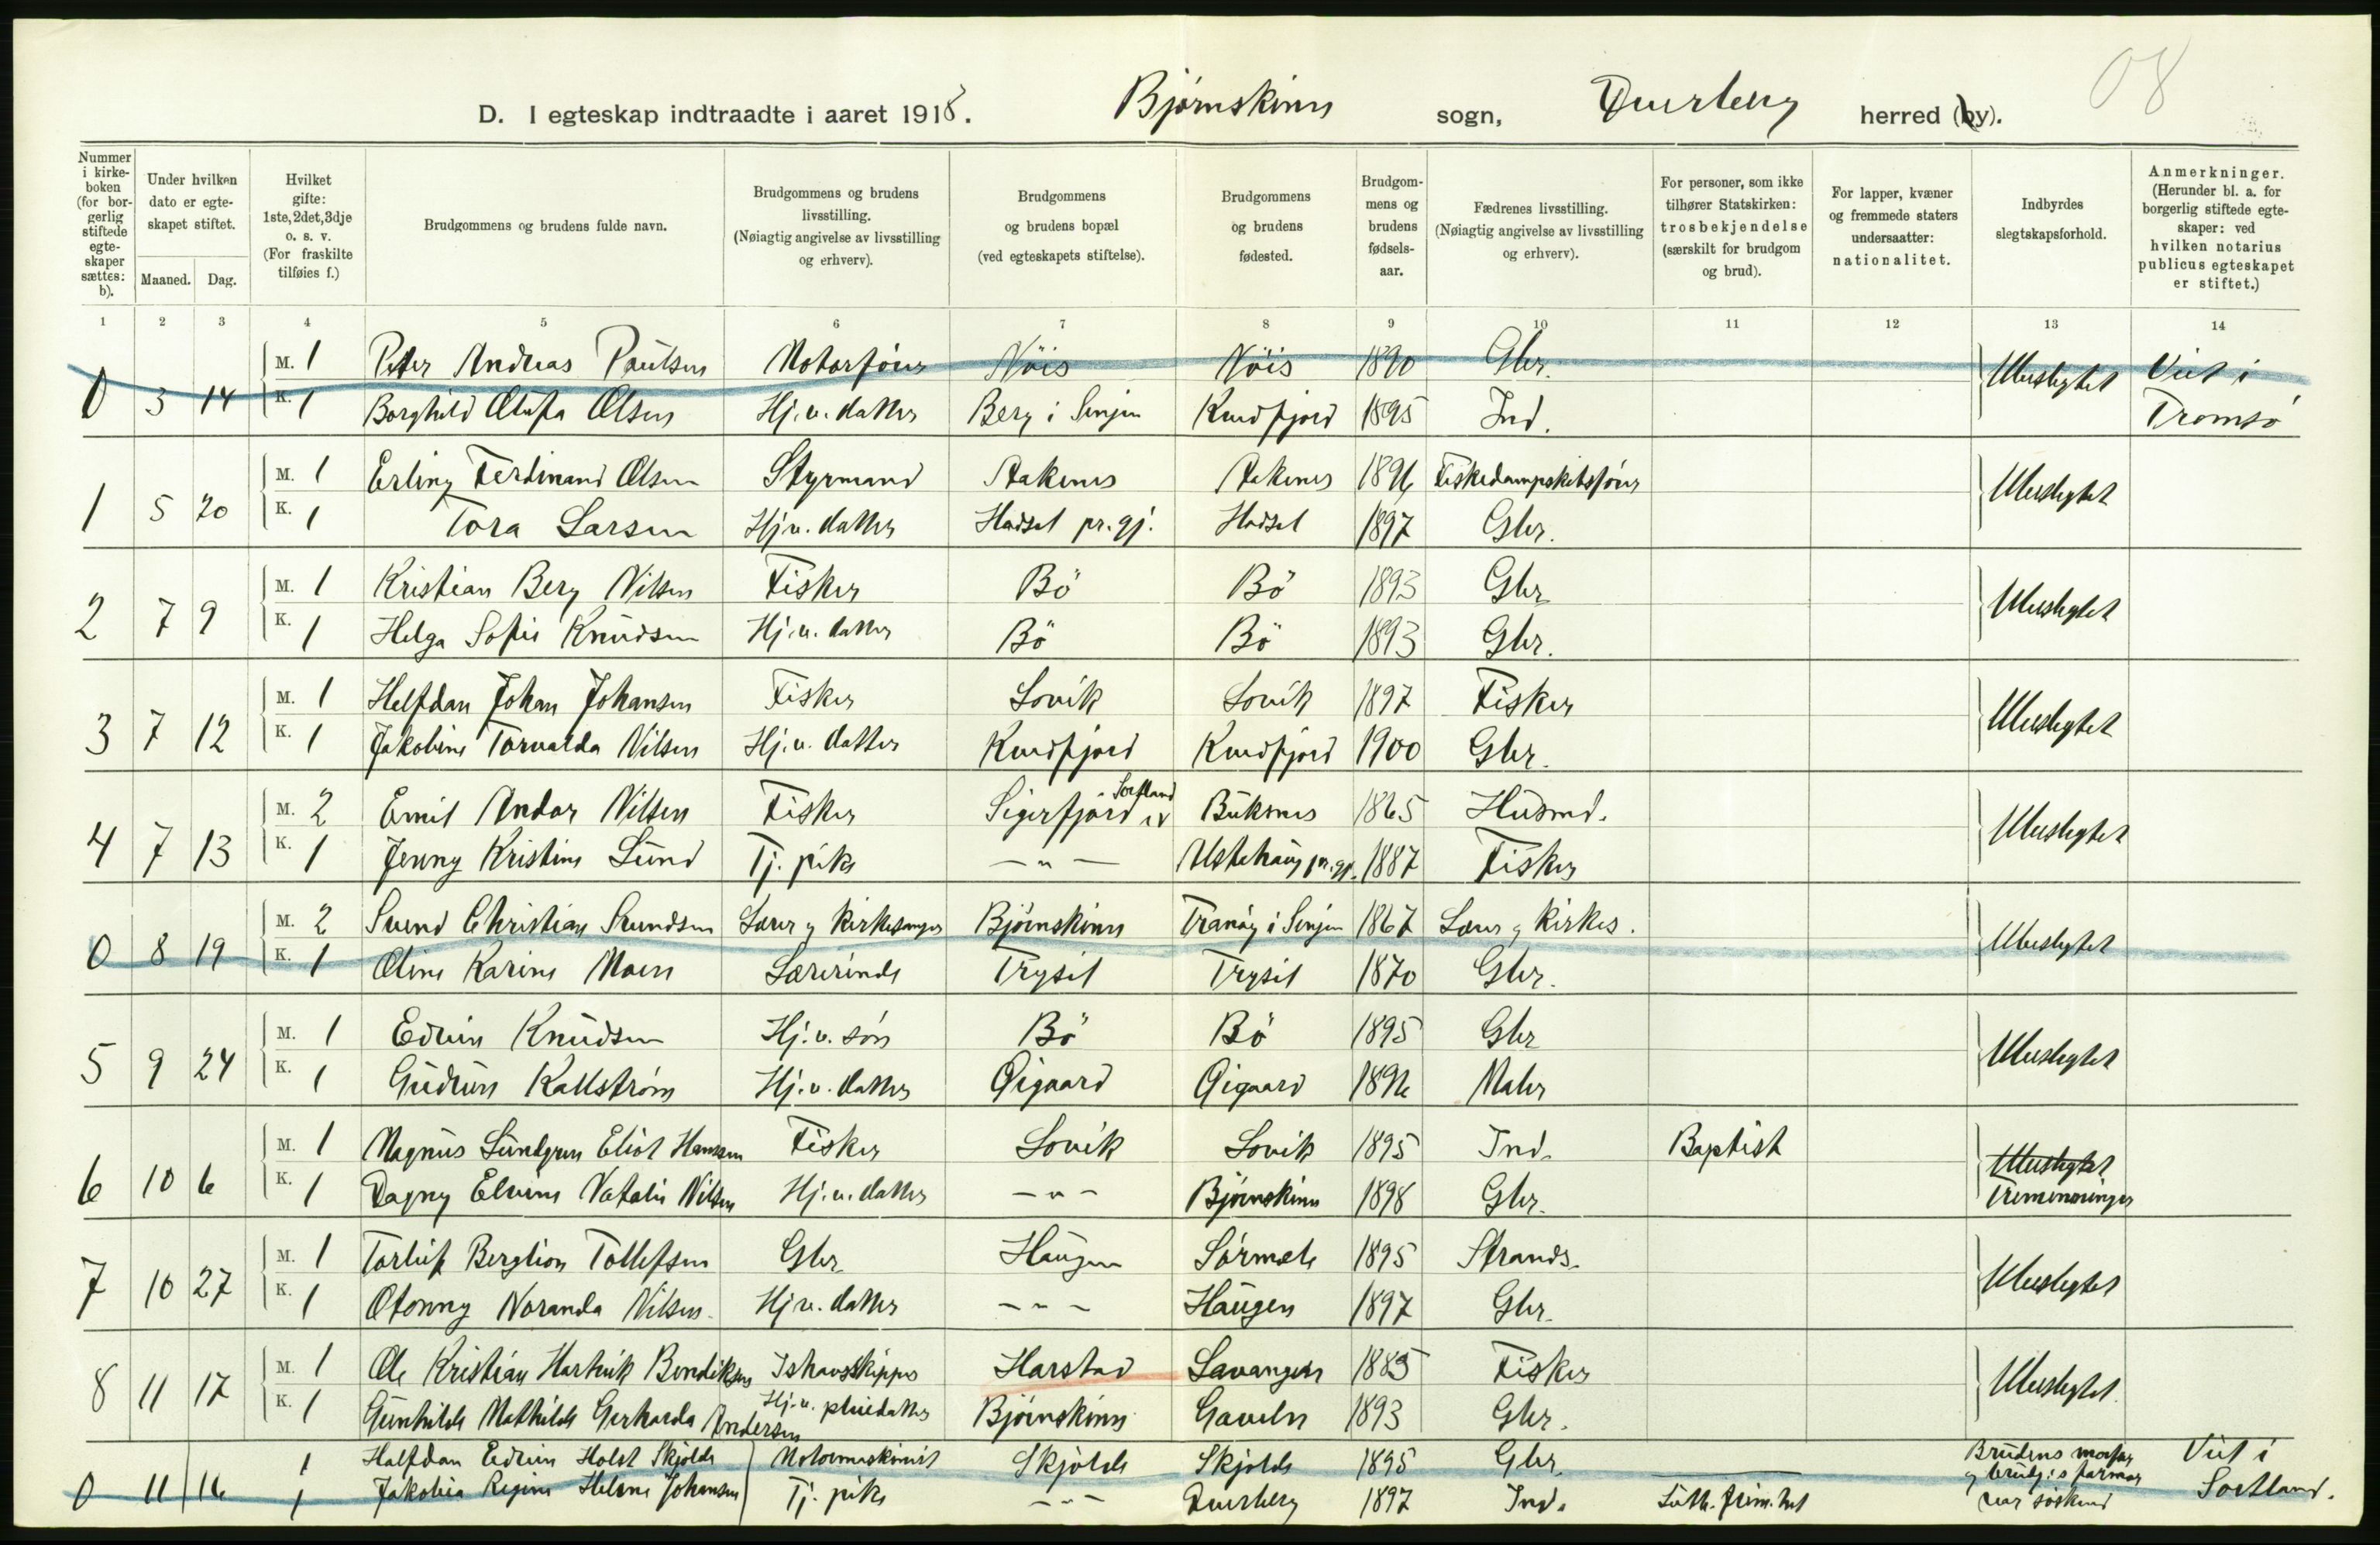 08
D. I egteskap indtraadte i aaret 1918. Bjørnskinn sogn, Dverberg herred (by).
Nummer i kirkeboken (for borgerlig stiftede egteskaper sættes: b).
Under hvilken dato er egteskapet stiftet.
Maaned. Dag.
Hvilket gifte: 1ste, 2det, 3dje o. s. v. (For fraskilte tilføies f.)
Brudgommens og brudens fulde navn.
Brudgommens og brudens livsstilling. (Nøiagtig angivelse av livsstilling og erhverv).
Brudgommens og brudens bopæl (ved egteskapets stiftelse).
Brudgommens og brudens fødested.
Brudgommens og brudens fødselsaar.
Fædrenes livsstilling. (Nøiagtig angivelse av livsstilling og erhverv).
For personer, som ikke tilhører Statskirken: trosbekjendelse (særskilt for brudgom og brud).
For lapper, kvæner og fremmede staters undersaatter: nationalitet.
Indbyrdes slegtskapsforhold.
Anmerkninger. (Herunder bl. a. for borgerlig stiftede egteskaper: ved hvilken notarius publicus egteskapet er stiftet.)
1 2 3 4 5 6 7 8 9 10 11 12 13 14
M. 1 Peter Andreas Paulsen Motorfører Nöis Nöis 1890 Gbr. Ubeslegtet Viet i
0 3 14 K. 1 Borghild Olufa Olsen Hj.v. datter Berg i Senjen Kvedfjord 1895 Ind. Tromsø
M. 1 Erling Ferdinand Olsen Styrmand Aakenes Aakenes 1896 Fiskedampskibsfører Ubeslegtet
1 5 20 K. 1 Tora Larsen Hj.v. datter Hadsel pr.gj. Hadsel 1897 Gbr.
M. 1 Kristian Berg Nilsen Fisker Bö Bö 1893 Gbr. Ubeslegtet
2 7 9 K. 1 Helga Sofie Knudsen Hj.v. datter Bö Bö 1893 Gbr.
M. 1 Halfdan Johan Johansen Fisker Lovik Lovik 1897 Fisker Ubeslegtet
3 7 12 K. 1 Jakobine Torvalda Nilsen Hj.v. datter Kvedfjord Kvedfjord 1900 Gbr.
M. 2 Emil Andor Nilsen Fisker Sigerfjord i V Sortland Buksnes 1865 Husmd. Ubeslegtet
4 7 13 K. 1 Jenny Kristine Lund Tj. pike — " — Alstahaug pr.gj. 1887 Fisker
M. 2 Svend Christian Svendsen Lærer og kirkesanger Bjørnskinn Tranøy i Senjen 1867 Lærer og kirkes. Ubeslegtet
0 8 19 K. 1 Oline Karine Moen Lærerinde Trysil Trysil 1870 Gbr.
M. 1 Edvin Knudsen Hj.v. søn Bö Bö 1895 Gbr. Ubeslegtet
5 9 24 K. 1 Gudrun Kallstrøm Hj.v. datter Åigaard Åigaard 1896 Maler
M. 1 Magnus Lundgren Eliot Hanssen Fisker Lovik Lovik 1895 Ind. Baptist Ubeslegtet
6 10 6 K. 1 Dagny Elvine Natalie Nilsen Hj.v. datter — " — Bjørnskinn 1898 Gbr. Tremenninger
M. 1 Torleif Berglion Tollefsen Gbr. Haugen Sørmæle 1895 Strands. Ubeslegtet
7 10 27 K. 1 Otonny Noranda Nilsen Hj.v. datter — " — Haugen 1897 Gbr.
M. 1 Ole Kristian Hartvik Bendiksen Ishavsskipper Harstad Lavangen 1885 Fisker Ubeslegtet
8 11 17 K. 1 Gunhilde Mathilde Gerharda Andersen Hj.v. pleiedatter Bjørnskinn Gaveln 1893 Gbr.
1 Halfdan Edvin Holst Skjolde Motormaskinist Skjolde Skjolde 1895 Gbr. Brudens morfar og brudg:s farmor var søskend Viet i
0 11 16 1 Jakobia Regine Helene Johansen Tj. pike — " — Dverberg 1897 Ind. Luth. frim.het Sortland.